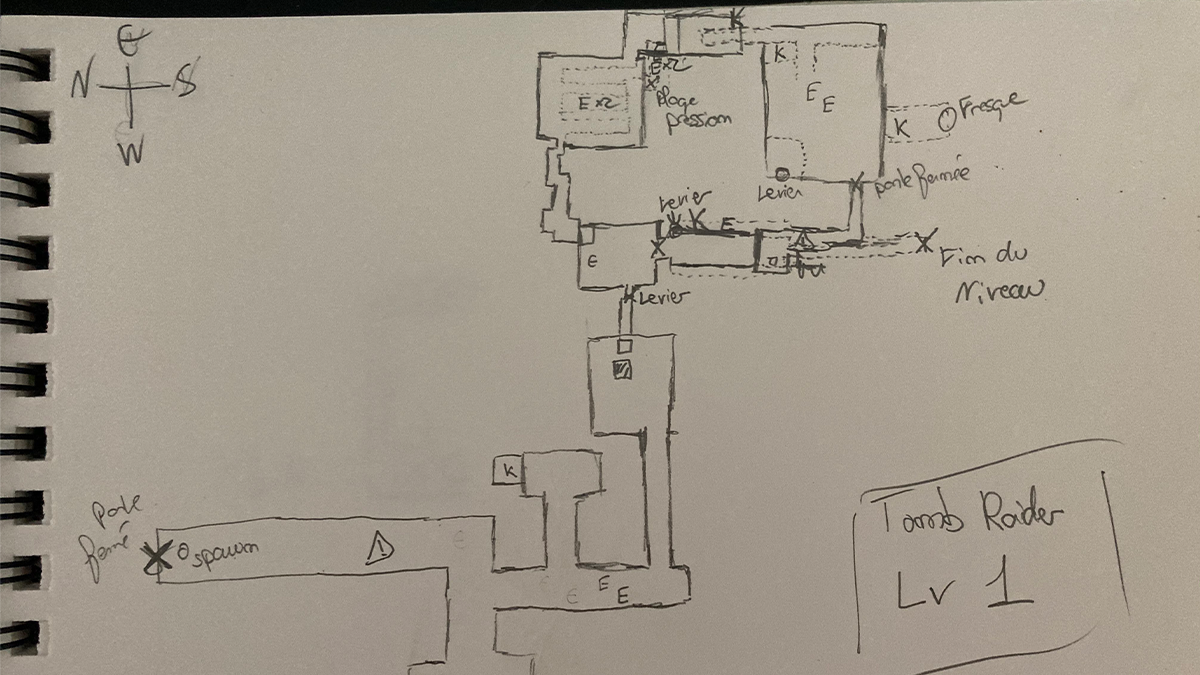 E
N S
W
K
K
E x2
E x2
E
E
K
Fresque
Plage
pression
Levier
porte fermée
Levier
K E
E
Levier
Fin du
Niveau
K
porte
fermé
spawn
E
E
E
E
Tomb Raider
Lv 1